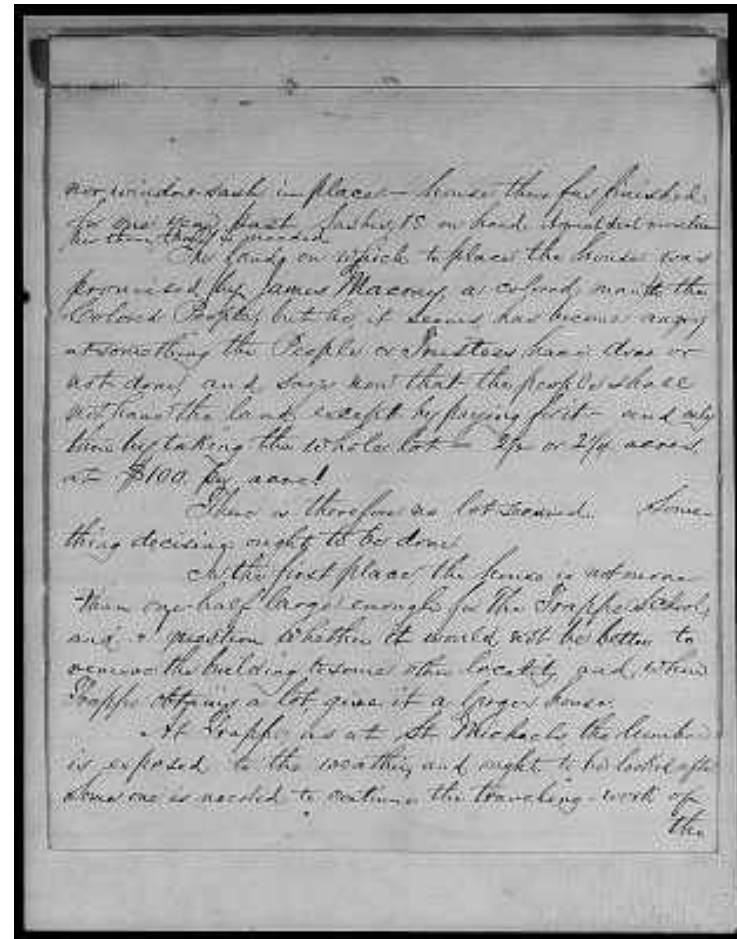 nor window sash in place – house thus far finished
for one year past. Sashes, 15 on hand.
than is needed
The land on which to place the house was
promised by James Macony, a colored man to the
Colored People, but as it seems has become angry
at something the People or Trustees have done or
not done, and says now that the people shall
not have the land, except by paying first – and only
then by taking the whole lot – 2½ or 2¼ acres
at $100. per acre!
There is therefore no lot secured. Some-
thing decisive ought to be done
In the first place, the house is not more
than one-half large enough for the Trappe School,
and I question whether it would not be better to
remove the building to some other locality, and when
Trappe obtains a lot give it a larger house.
At Trappe as at St Michaels the lumber
is exposed to the weather, and ought to be looked after
Some one is needed to continue the traveling work of
the